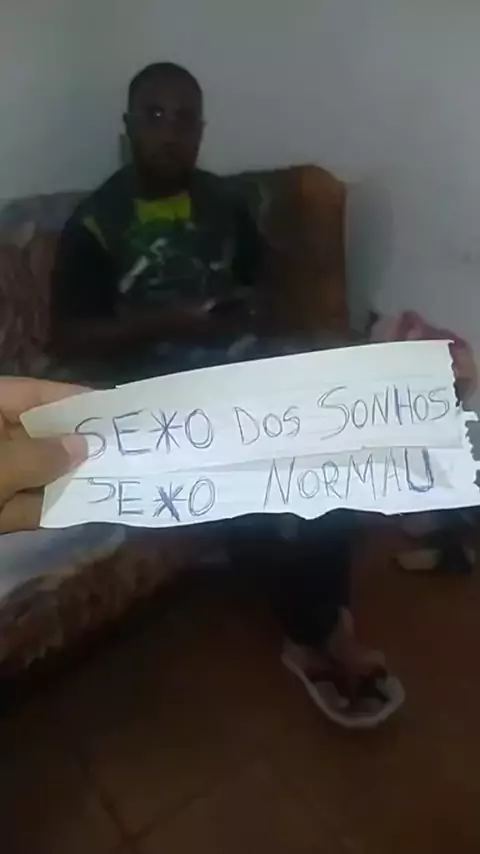 SE*O DOS SONHOS
SE*O NORMAU